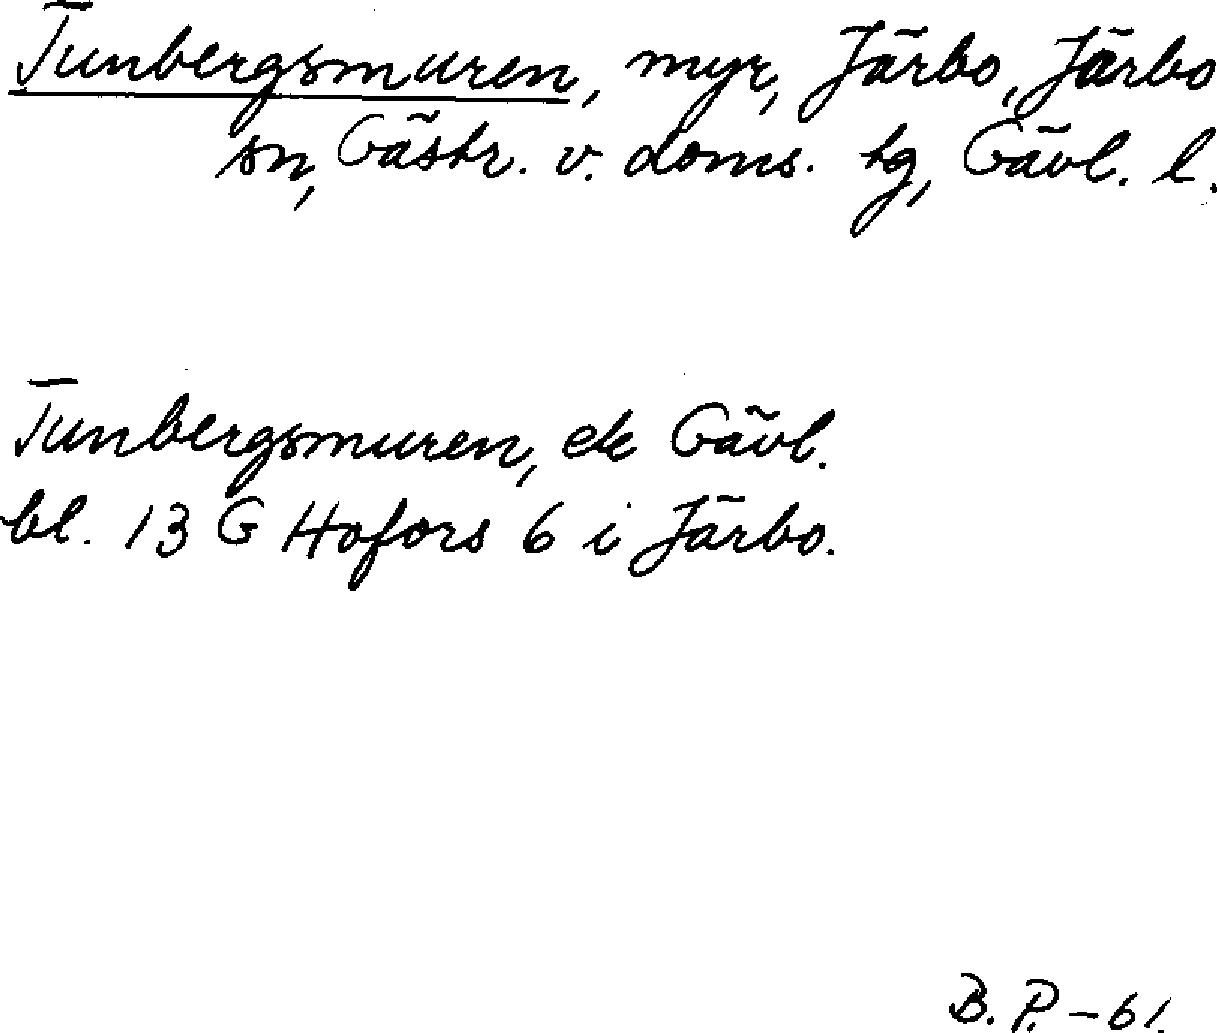 Tunbergsmuren, myr, Järbo, Järbo
sn, Gästr. v. doms. tg, Gävl. l.
Tunbergsmuren, ek Gävl.
bl. 13 G Hofors 6 i Järbo.
B. P. - 61.